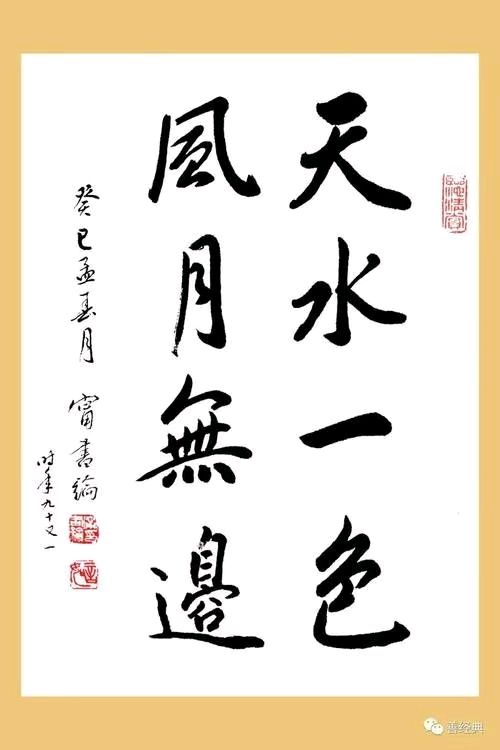 天水一色
風月無邊
癸巳孟春月 甯書綸
时年九十又一
善经典